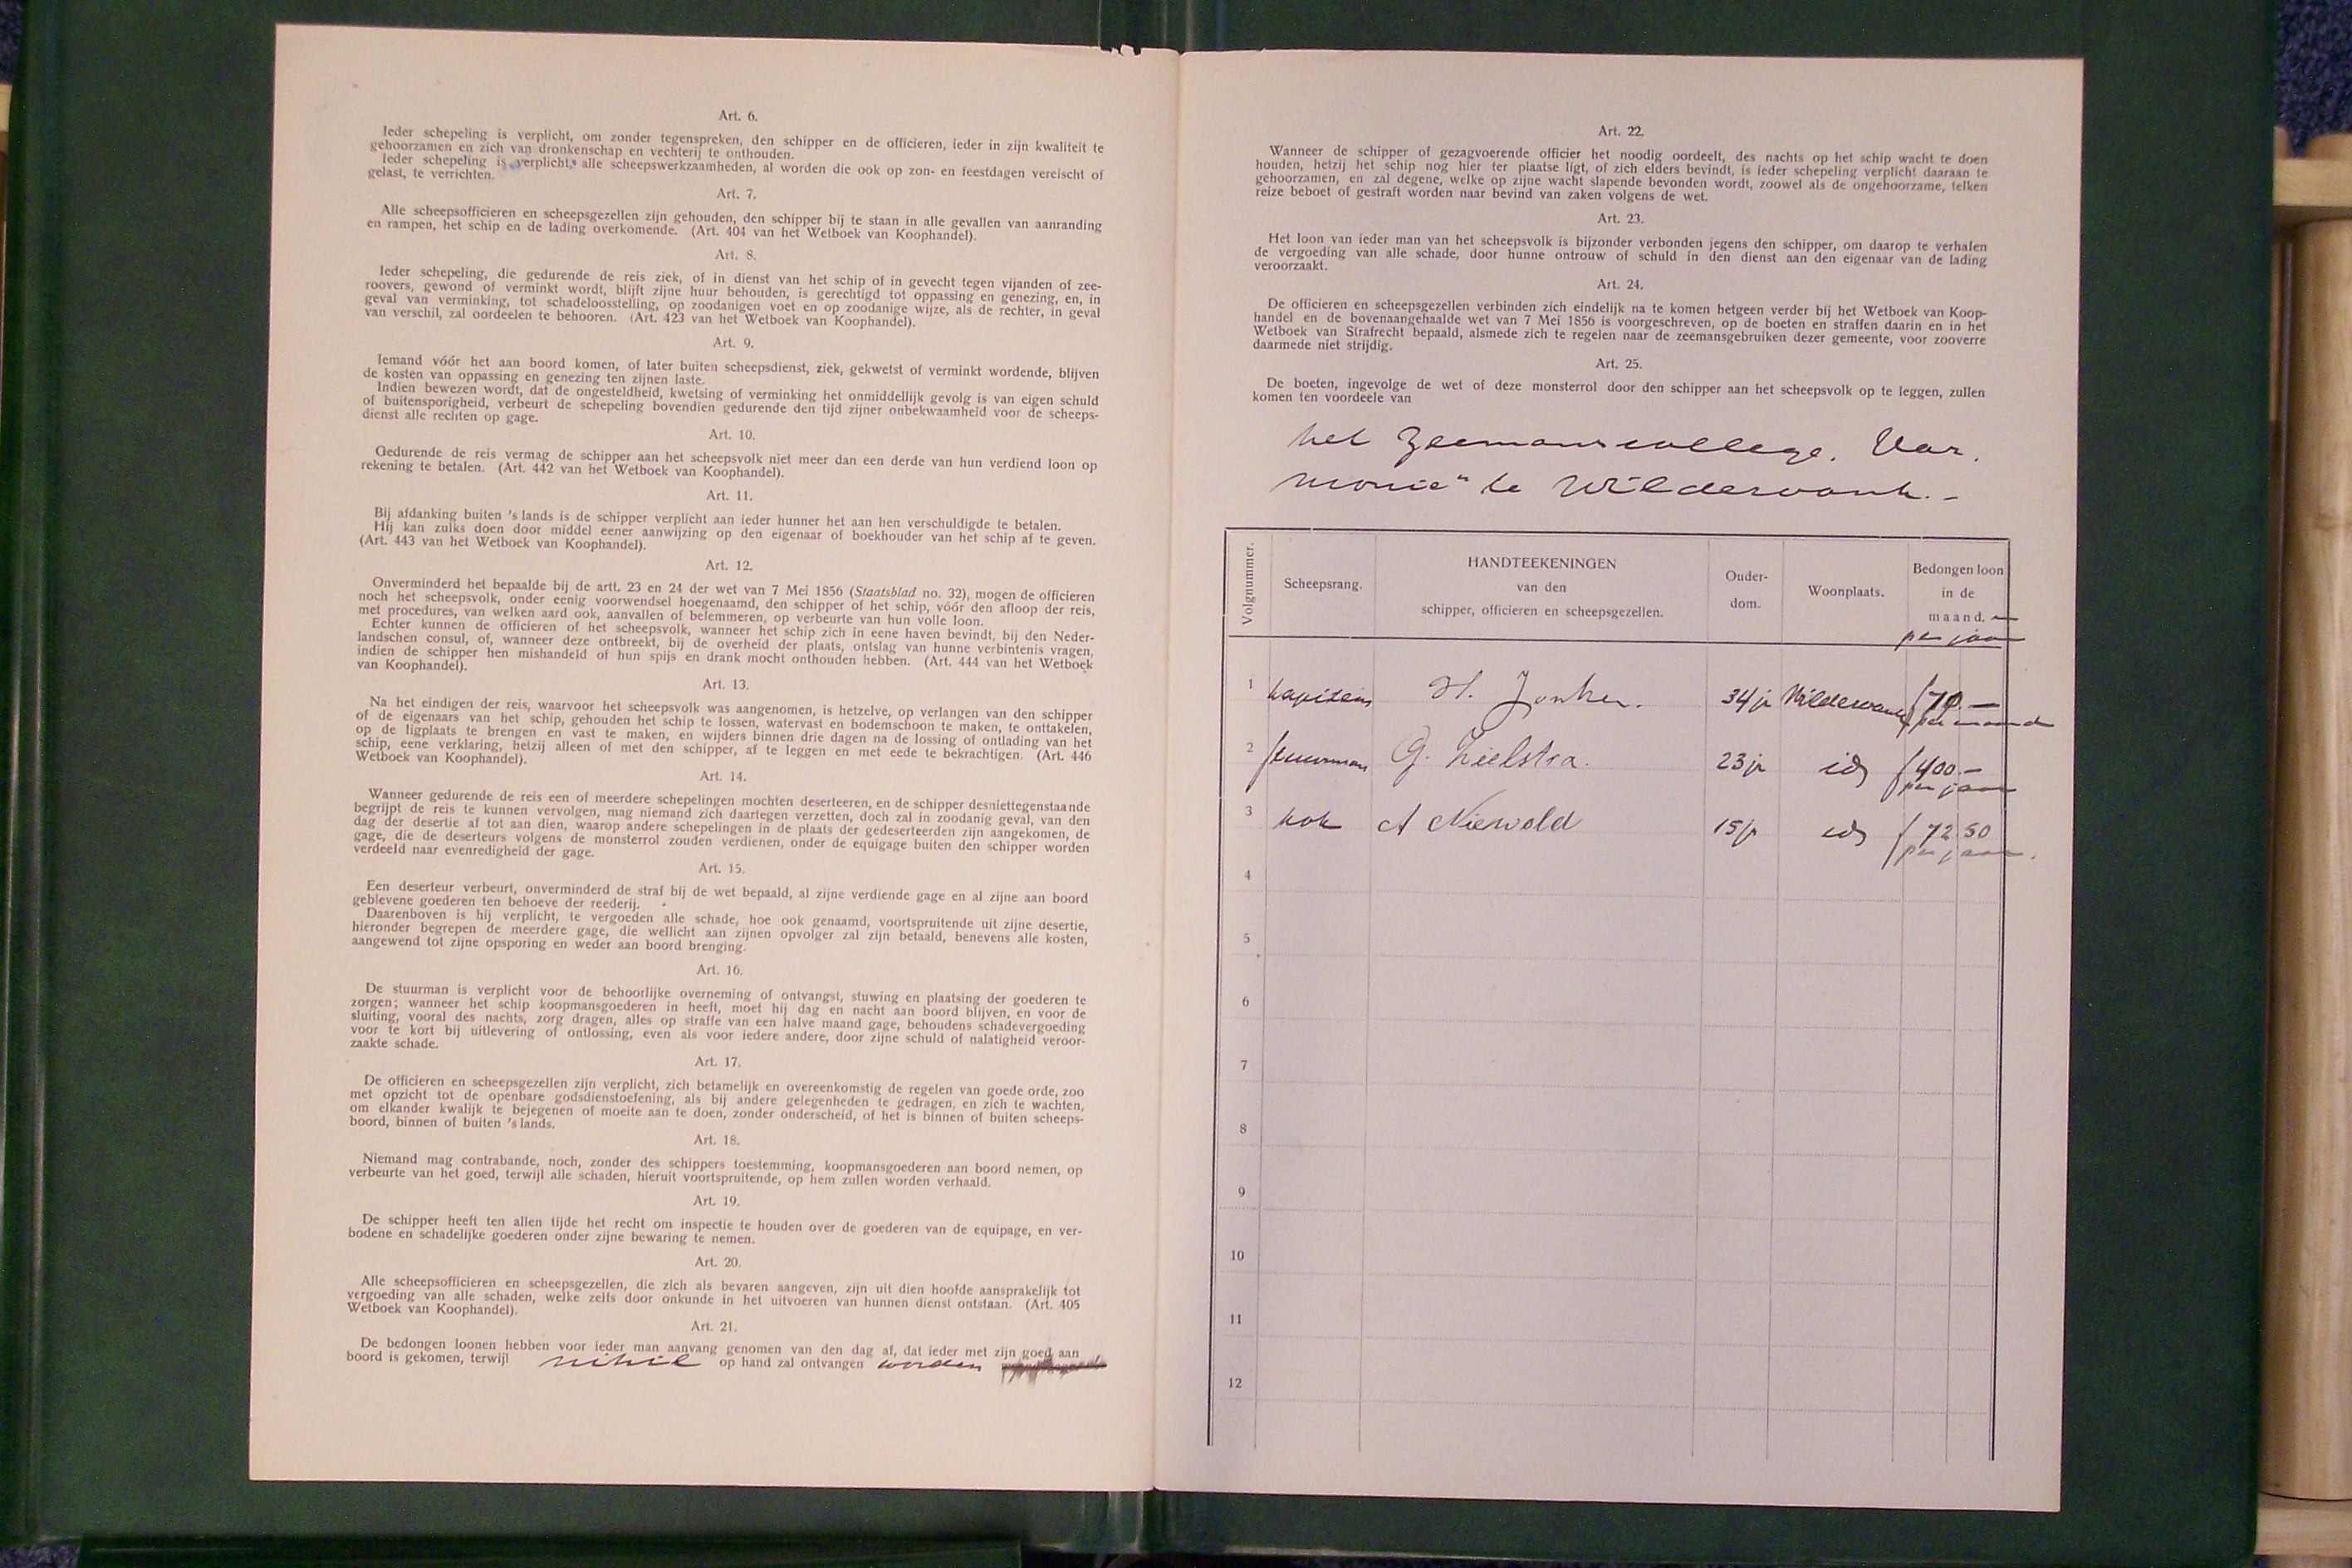 Art. 6.
Ieder schepeling is verplicht, om zonder tegenspreken, den schipper en de officieren, ieder in zijn kwaliteit te
gehoorzamen en zich van dronkenschap en vechterij te onthouden.
Ieder schepeling is verplicht, alle scheepswerkzaamheden, al worden die ook op zon- en feestdagen vereischt of
gelast, te verrichten.
Art. 7.
Alle scheepsofficieren en scheepsgezellen zijn gehouden, den schipper bij te staan in alle gevallen van aanranding
en rampen, het schip en de lading overkomende. (Art. 404 van het Wetboek van Koophandel).
Art. 8.
Ieder schepeling, die gedurende de reis ziek, of in dienst van het schip of in gevecht tegen vijanden of zee-
roovers, gewond of verminkt wordt, blijft zijne huur behouden, is gerechtigd tot oppassing en genezing, en, in
geval van verminking, tot schadeloosstelling, op zoodanigen voet en op zoodanige wijze, als de rechter, in geval
van verschil, zal oordeelen te behooren. (Art. 423 van het Wetboek van Koophandel).
Art. 9.
Iemand vóór het aan boord komen, of later buiten scheepsdienst, ziek, gekwetst of verminkt wordende, blijven
de kosten van oppassing en genezing ten zijnen laste.
Indien bewezen wordt, dat de ongesteldheid, kwetsing of verminking het onmiddellijk gevolg is van eigen schuld
of buitensporigheid, verbeurt de schepeling bovendien gedurende den tijd zijner onbekwaamheid voor de scheeps-
dienst alle rechten op gage.
Art. 10.
Gedurende de reis vermag de schipper aan het scheepsvolk niet meer dan een derde van hun verdiend loon op
rekening te betalen. (Art. 442 van het Wetboek van Koophandel).
Art. 11.
Bij afdanking buiten 's lands is de schipper verplicht aan ieder hunner het aan hen verschuldigde te betalen.
Hij kan zulks doen door middel eener aanwijzing op den eigenaar of boekhouder van het schip af te geven.
(Art. 443 van het Wetboek van Koophandel).
Art. 12.
Onverminderd het bepaalde bij de artt. 23 en 24 der wet van 7 Mei 1856 (Staatsblad no. 32), mogen de officieren
noch het scheepsvolk, onder eenig voorwendsel hoegenaamd, den schipper of het schip, vóór den afloop der reis,
met procedures, van welken aard ook, aanvallen of belemmeren, op verbeurte van hun volle loon.
Echter kunnen de officieren of het scheepsvolk, wanneer het schip zich in eene haven bevindt, bij den Neder-
landschen consul, of, wanneer deze ontbreekt, bij de overheid der plaats, ontslag van hunne verbintenis vragen,
indien de schipper hen mishandeld of hun spijs en drank mocht onthouden hebben. (Art. 444 van het Wetboek
van Koophandel).
Art. 13.
Na het eindigen der reis, waarvoor het scheepsvolk was aangenomen, is hetzelve, op verlangen van den schipper
of de eigenaars van het schip, gehouden het schip te lossen, watervast en bodemschoon te maken, te onttakelen,
op de ligplaats te brengen en vast te maken, en wijders binnen drie dagen na de lossing of ontlading van het
schip, eene verklaring, hetzij alleen of met den schipper, af te leggen en met eede te bekrachtigen. (Art. 446
Wetboek van Koophandel).
Art. 14.
Wanneer gedurende de reis een of meerdere schepelingen mochten deserteeren, en de schipper desniettegenstaande
begrijpt de reis te kunnen vervolgen, mag niemand zich daartegen verzetten, doch zal in zoodanig geval, van den
dag der desertie af tot aan dien, waarop andere schepelingen in de plaats der gedeserteerden zijn aangekomen, de
gage, die de deserteurs volgens de monsterrol zouden verdienen, onder de equigage buiten den schipper worden
verdeeld naar evenredigheid der gage.
Art. 15.
Een deserteur verbeurt, onverminderd de straf bij de wet bepaald, al zijne verdiende gage en al zijne aan boord
geblevene goederen ten behoeve der reederij.
Daarenboven is hij verplicht, te vergoeden alle schade, hoe ook genaamd, voortspruitende uit zijne desertie,
hieronder begrepen de meerdere gage, die wellicht aan zijnen opvolger zal zijn betaald, benevens alle kosten,
aangewend tot zijne opsporing en weder aan boord brenging.
Art. 16.
De stuurman is verplicht voor de behoorlijke overneming of ontvangst, stuwing en plaatsing der goederen te
zorgen; wanneer het schip koopmansgoederen in heeft, moet hij dag en nacht aan boord blijven, en voor de
sluiting, vooral des nachts, zorg dragen, alles op straffe van een halve maand gage, behoudens schadevergoeding
voor te kort bij uitlevering of ontlossing, even als voor iedere andere, door zijne schuld of nalatigheid veroor-
zaakte schade.
Art. 17.
De officieren en scheepsgezellen zijn verplicht, zich betamelijk en overeenkomstig de regelen van goede orde, zoo
met opzicht tot de openbare godsdienstoefening, als bij andere gelegenheden te gedragen, en zich te wachten,
om elkander kwalijk te bejegenen of moeite aan te doen, zonder onderscheid, of het is binnen of buiten scheeps-
boord, binnen of buiten 's lands.
Art. 18.
Niemand mag contrabande, noch, zonder des schippers toestemming, koopmansgoederen aan boord nemen, op
verbeurte van het goed, terwijl alle schaden, hieruit voortspruitende, op hem zullen worden verhaald.
Art. 19.
De schipper heeft ten allen tijde het recht om inspectie te houden over de goederen van de equipage, en ver-
bodene en schadelijke goederen onder zijne bewaring te nemen.
Art. 20.
Alle scheepsofficieren en scheepsgezellen, die zich als bevaren aangeven, zijn uit dien hoofde aansprakelijk tot
vergoeding van alle schaden, welke zelfs door onkunde in het uitvoeren van hunnen dienst ontstaan. (Art. 405
Wetboek van Koophandel).
Art. 21.
De bedongen loonen hebben voor ieder man aanvang genomen van den dag af, dat ieder met zijn goed aan
boord is gekomen, terwijl nihil op hand zal ontvangen worden
Art. 22.
Wanneer de schipper of gezagvoerende officier het noodig oordeelt, des nachts op het schip wacht te doen
houden, hetzij het schip nog hier ter plaatse ligt, of zich elders bevindt, is ieder schepeling verplicht daaraan te
gehoorzamen, en zal degene, welke op zijne wacht slapende bevonden wordt, zoowel als de ongehoorzame, telken
reize beboet of gestraft worden naar bevind van zaken volgens de wet.
Art. 23.
Het loon van ieder man van het scheepsvolk is bijzonder verbonden jegens den schipper, om daarop te verhalen
de vergoeding van alle schade, door hunne ontrouw of schuld in den dienst aan den eigenaar van de lading
veroorzaakt.
Art. 24.
De officieren en scheepsgezellen verbinden zich eindelijk na te komen hetgeen verder bij het Wetboek van Koop-
handel en de bovenaangehaalde wet van 7 Mei 1856 is voorgeschreven, op de boeten en straffen daarin en in het
Wetboek van Strafrecht bepaald, alsmede zich te regelen naar de zeemansgebruiken dezer gemeente, voor zooverre
daarmede niet strijdig.
Art. 25.
De boeten, ingevolge de wet of deze monsterrol door den schipper aan het scheepsvolk op te leggen, zullen
komen ten voordeele van
het Zeemanscollege. Var.
monie" te Wildervank.-
Volgnummer. Scheepsrang. HANDTEEKENINGEN van den schipper, officieren en scheepsgezellen. Ouder-dom. Woonplaats. Bedongen loon in de maand.
per jaar
1 kapitein H. Jonker. 34 jr Wildervank f 70.-
per maand
2 stuurman G. Zielstra. 23 jr id f 400.-
per jaar
3 kok A Niewold 15 jr id f 72.50
per jaar.
4
5
6
7
8
9
10
11
12